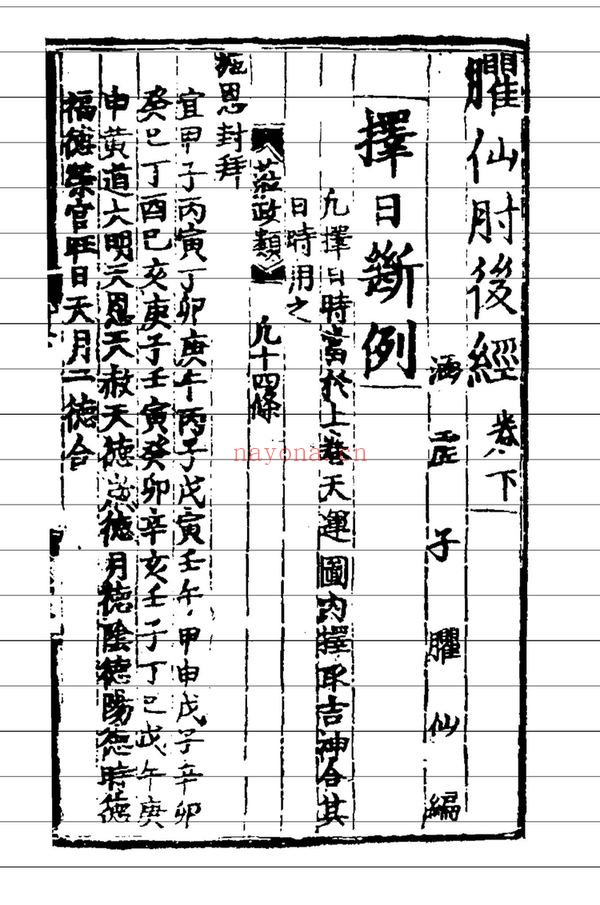 臞仙肘後經卷下
涵虛子臞仙編
擇日斷例
凡擇日時當於上卷天運圖內擇取吉神合其
日時用之
蒞政類 凡十四條
施恩封拜
宜甲子丙寅丁卯庚午丙子戊寅壬午甲申戊子辛卯
癸巳丁酉己亥庚子壬寅癸卯辛亥壬子丁巳戊午庚
申黃道大明天恩天赦天德歲德月德陰德陽德時德
福德榮官旺日天月二德合
nayona.cn